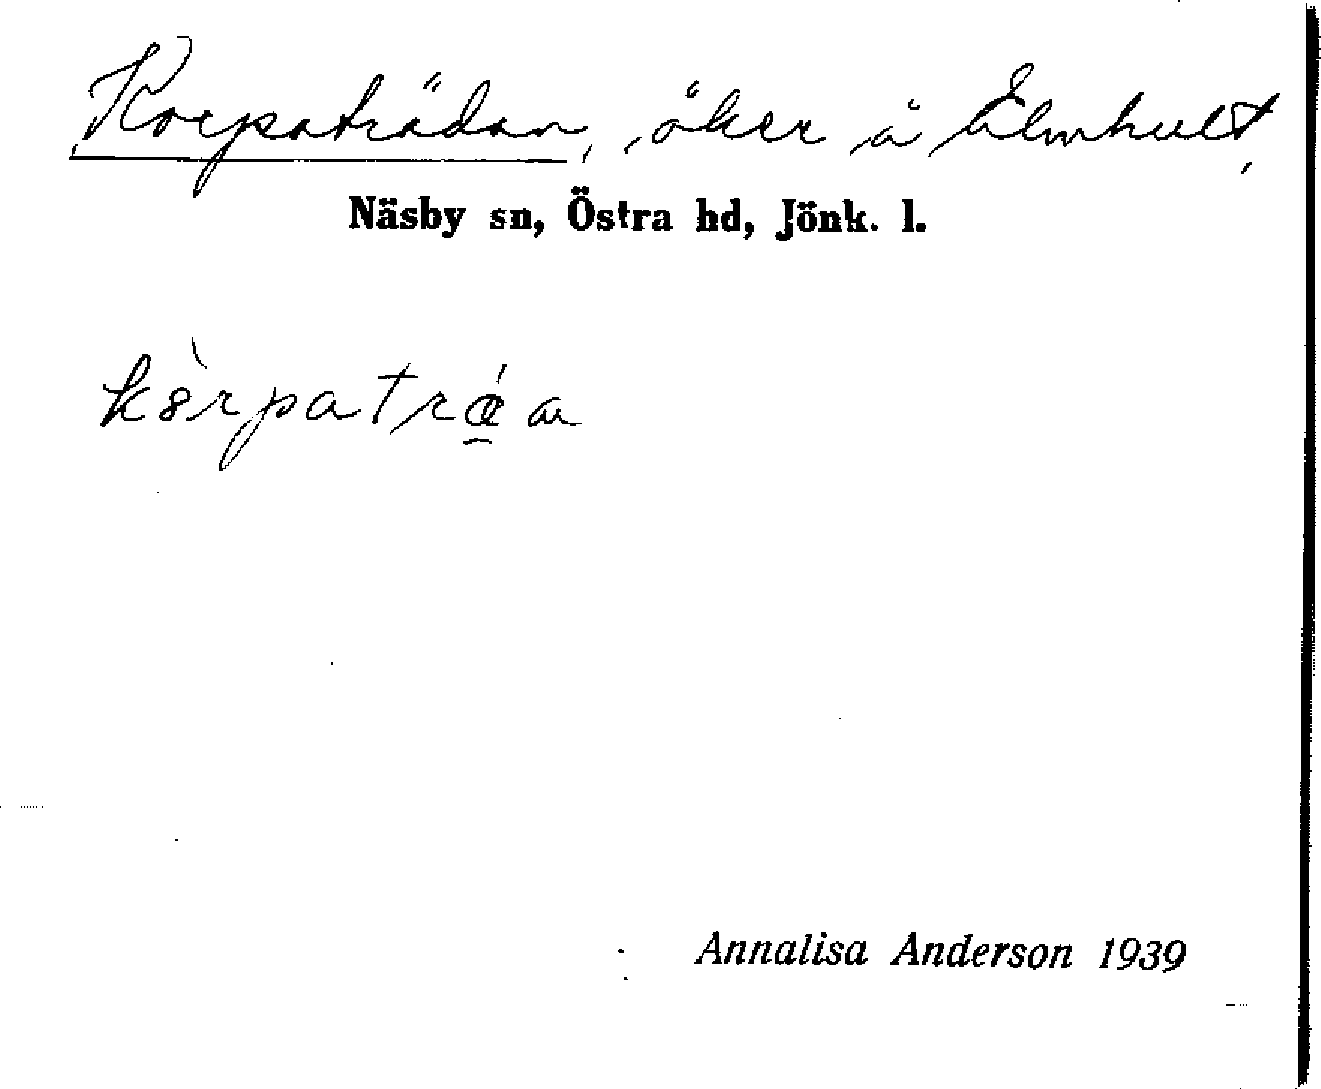 Korpaträdan, åker å Elmhult,
Näsby sn, Östra hd, Jönk. l.
kȣ̀rpatrǽa
Annalisa Anderson 1939